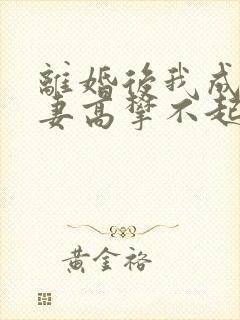 離婚後我成
妻高攀不起
黃金裕